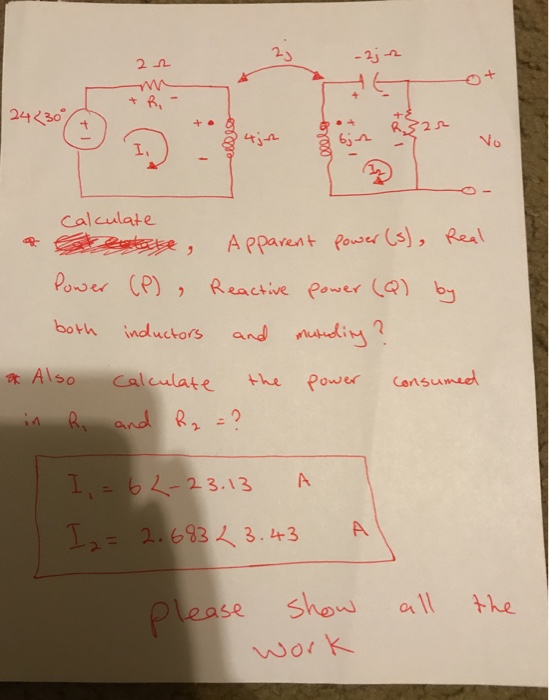 2j
-2j Ω
2 Ω
+ R₁ -
+
24<30°
+
-
I₁
+
4jΩ
-
+
6jΩ
-
+ -
I₂
+
R₂
-
2Ω
+
Vo
-
calculate
* , Apparent power (s), Real
Power (P), Reactive power (Q) by
both inductors and
* Also calculate the power consumed
in R₁ and R₂ = ?
I₁ = 6 <-23.13 A
I₂ = 2.683 < 3.43 A
please show all the
work